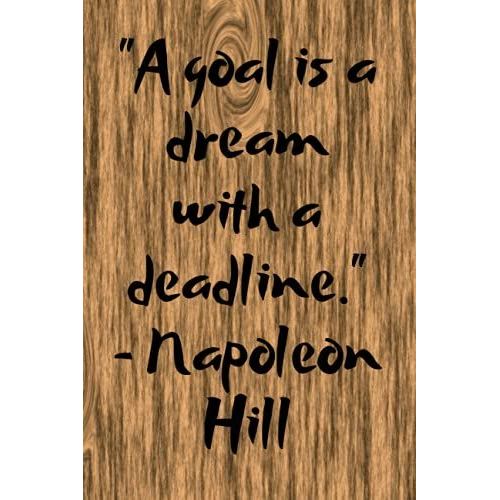 "A goal is a
dream
with a
deadline."
- Napoleon
Hill